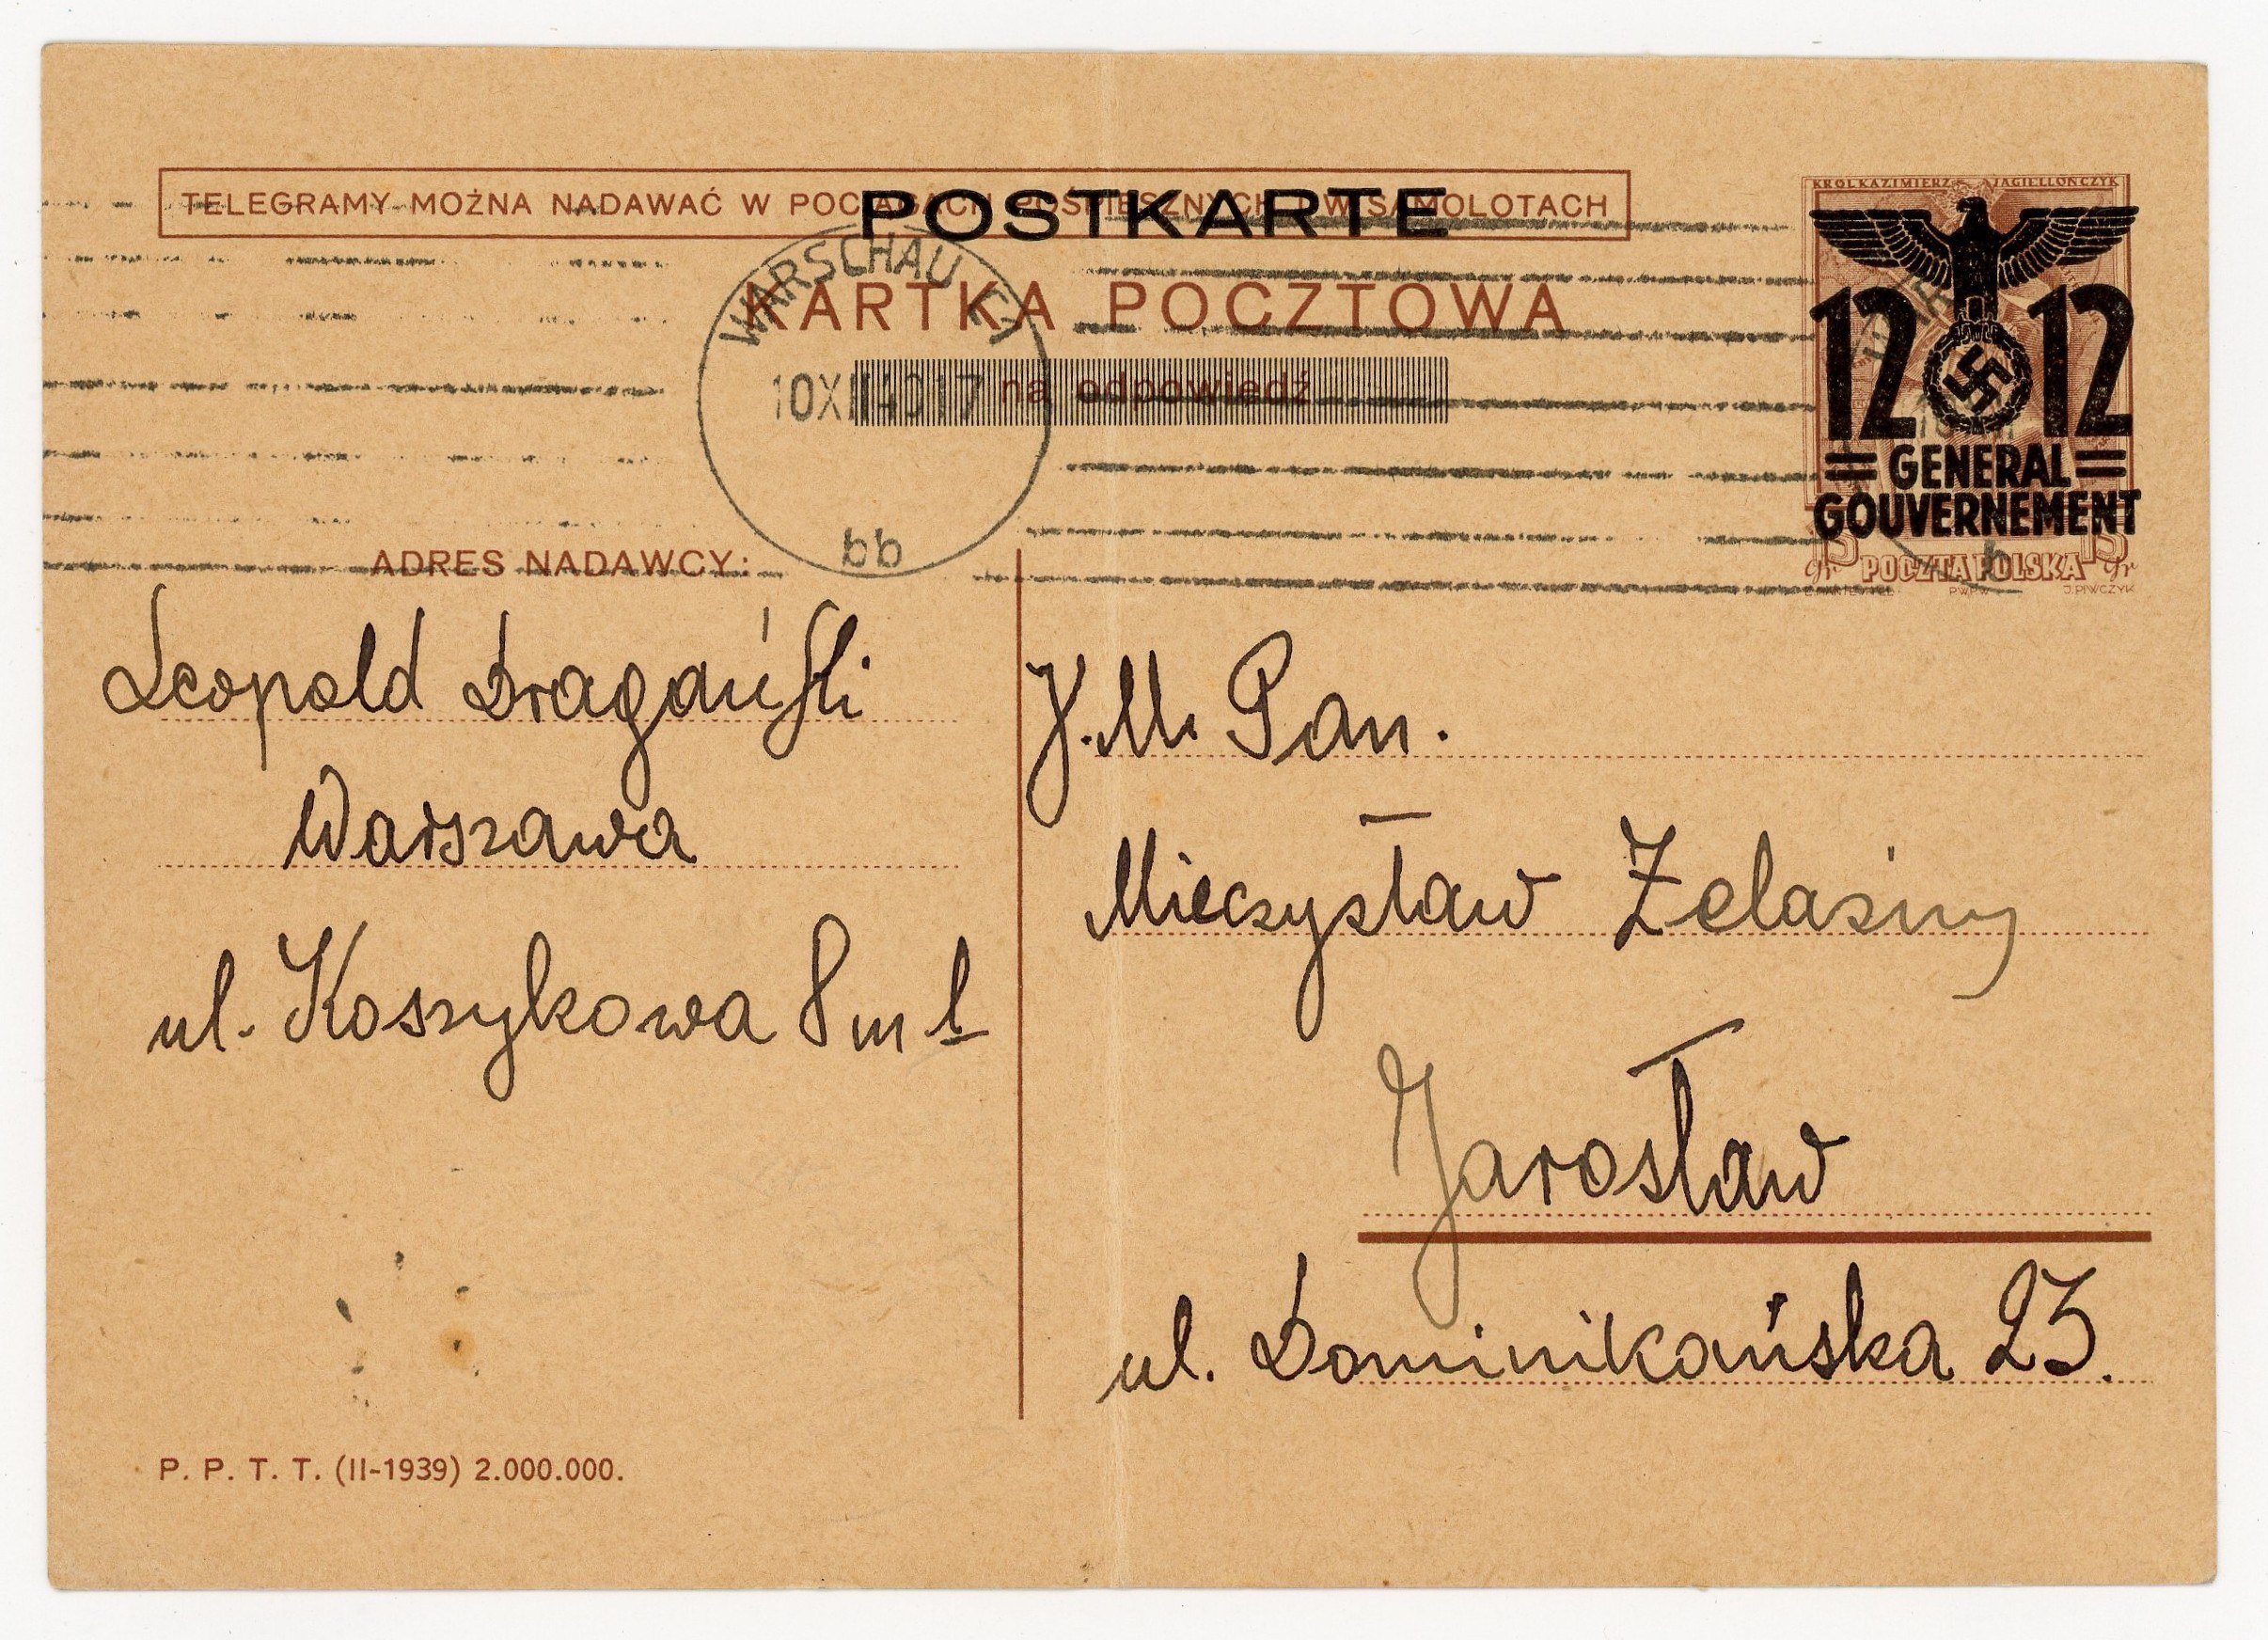 TELEGRAMY MOŻNA NADAWAĆ W POCIĄGACH POŚPIESZNYCH I W SAMOLOTACH
POSTKARTE
KARTKA POCZTOWA
na odpowiedź
WARSCHAU
10XII40 17
bb
KRÓL KAZIMIERZ JAGIELLOŃCZYK
12 12
GENERAL
GOUVERNEMENT
15 15
gr POCZTA POLSKA gr
PWPW J.PIWCZYK
ADRES NADAWCY:
Leopold Dragański
Warszawa
ul. Koszykowa 8 m
J.M. Pan.
Mieczysław Żelaśny
Jarosław
ul. Dominikańska 23.
P. P. T. T. (II-1939) 2.000.000.